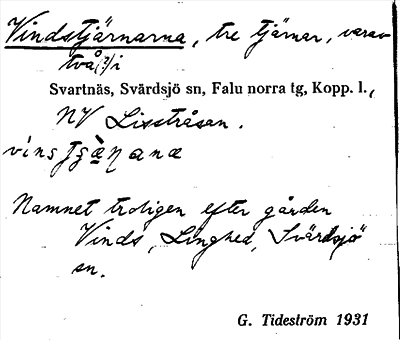 Vindstjärnarna, tre tjärnar, varav
två(?) i
Svartnäs, Svärdsjö sn, Falu norra tg, Kopp. l.,
NV Lisstråsan.
Namnet troligen efter gården
Vinds, Linghed, Svärdsjö
sn.
G. Tideström 1931